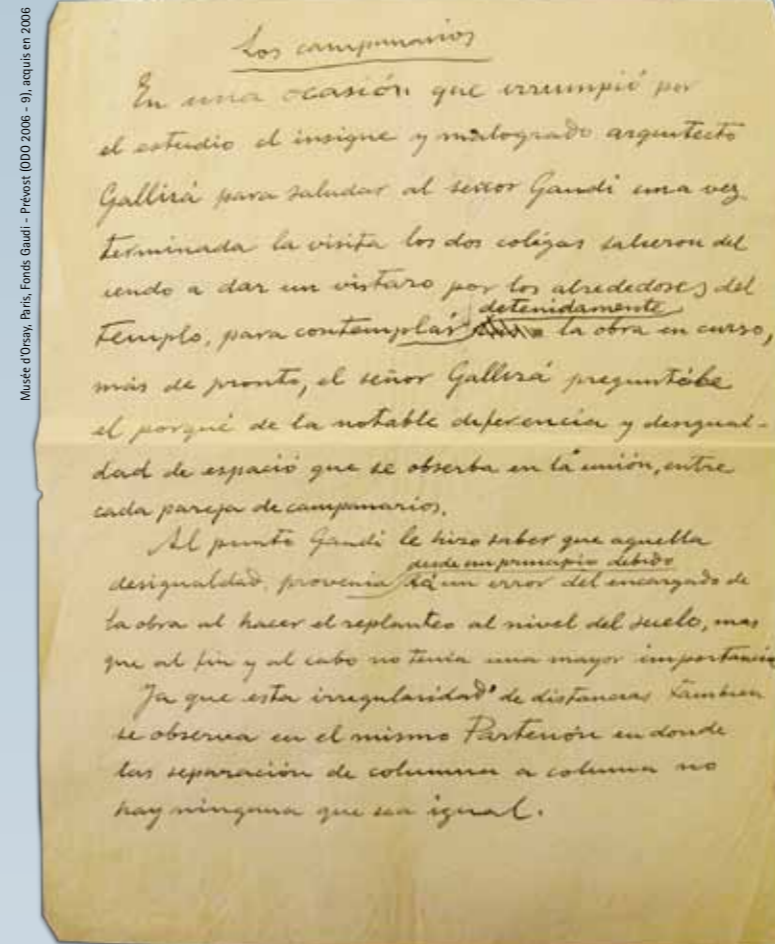 Musée d'Orsay, Paris, Fonds Gaudi - Prévost (ODO 2006 - 9), acquis en 2006
Los campanarios
En una ocasión que irrumpió por
el estudio el insigne y malogrado arquitecto
Gallisá para saludar al señor Gaudí una vez
terminada la visita los dos colegas salieron del
a dar un vistazo por los alrededores del
detenidamente
Templo, para contemplar la obra en curso,
más de pronto, el señor Gallisá preguntóle
el porqué de la notable diferencia y desigual-
dad de espació que se obserba en la unión, entre
cada pareja de campanarios.
Al punto Gaudí le hizo saber que aquella
desde un principio debido
desigualdad, provenia a un error del encargado de
la obra al hacer el replanteo al nivel del suelo, mas
que al fin y al cabo no tenia una mayor importancia
Ja que esta irregularidad de distancias tambien
se observa en el mismo Partenón en donde
las separación de columna a columna no
hay ninguna que sea igual.